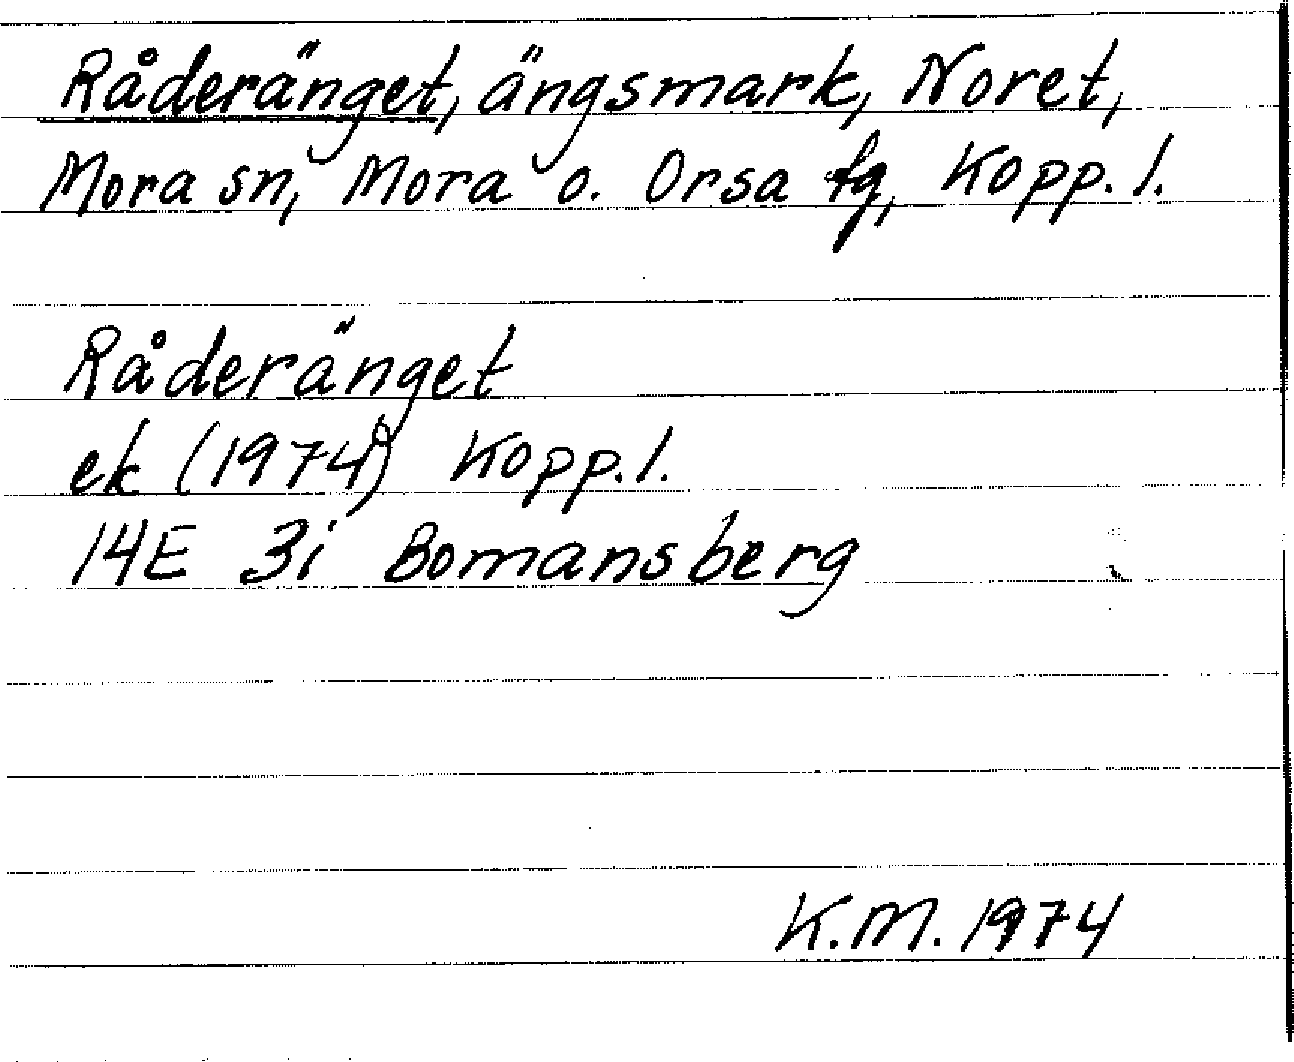 Råderänget, ängsmark, Noret,
Mora sn, Mora o. Orsa fg, Kopp. l.
Råderänget
ek (1974) Kopp. l.
14E 3i Bomansberg
K.M. 1974